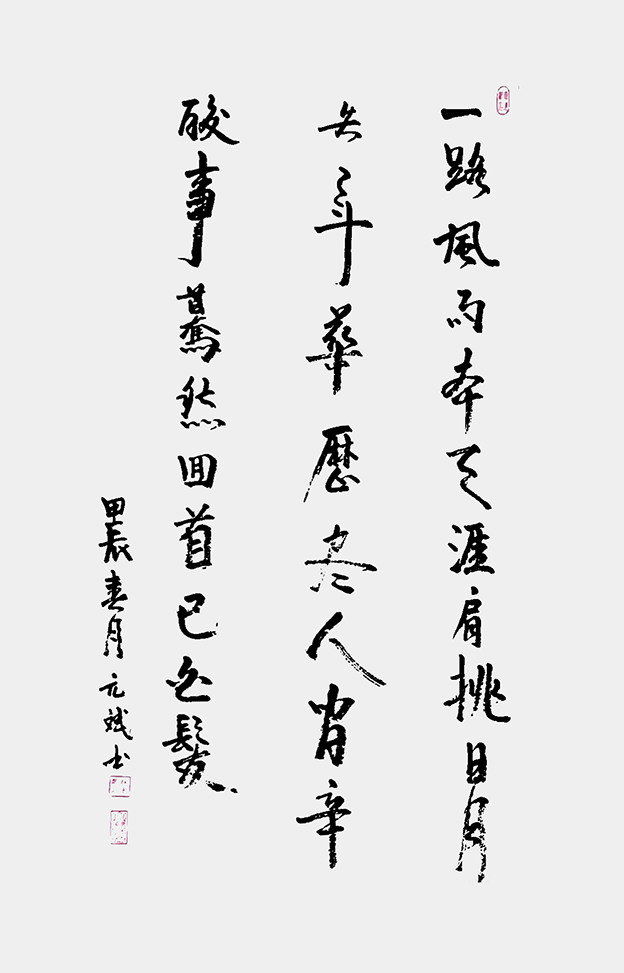 一路風雨奔天涯肩挑日月
華歷尽人間辛
酸事驀然回首已白髮
甲辰春月元斌书